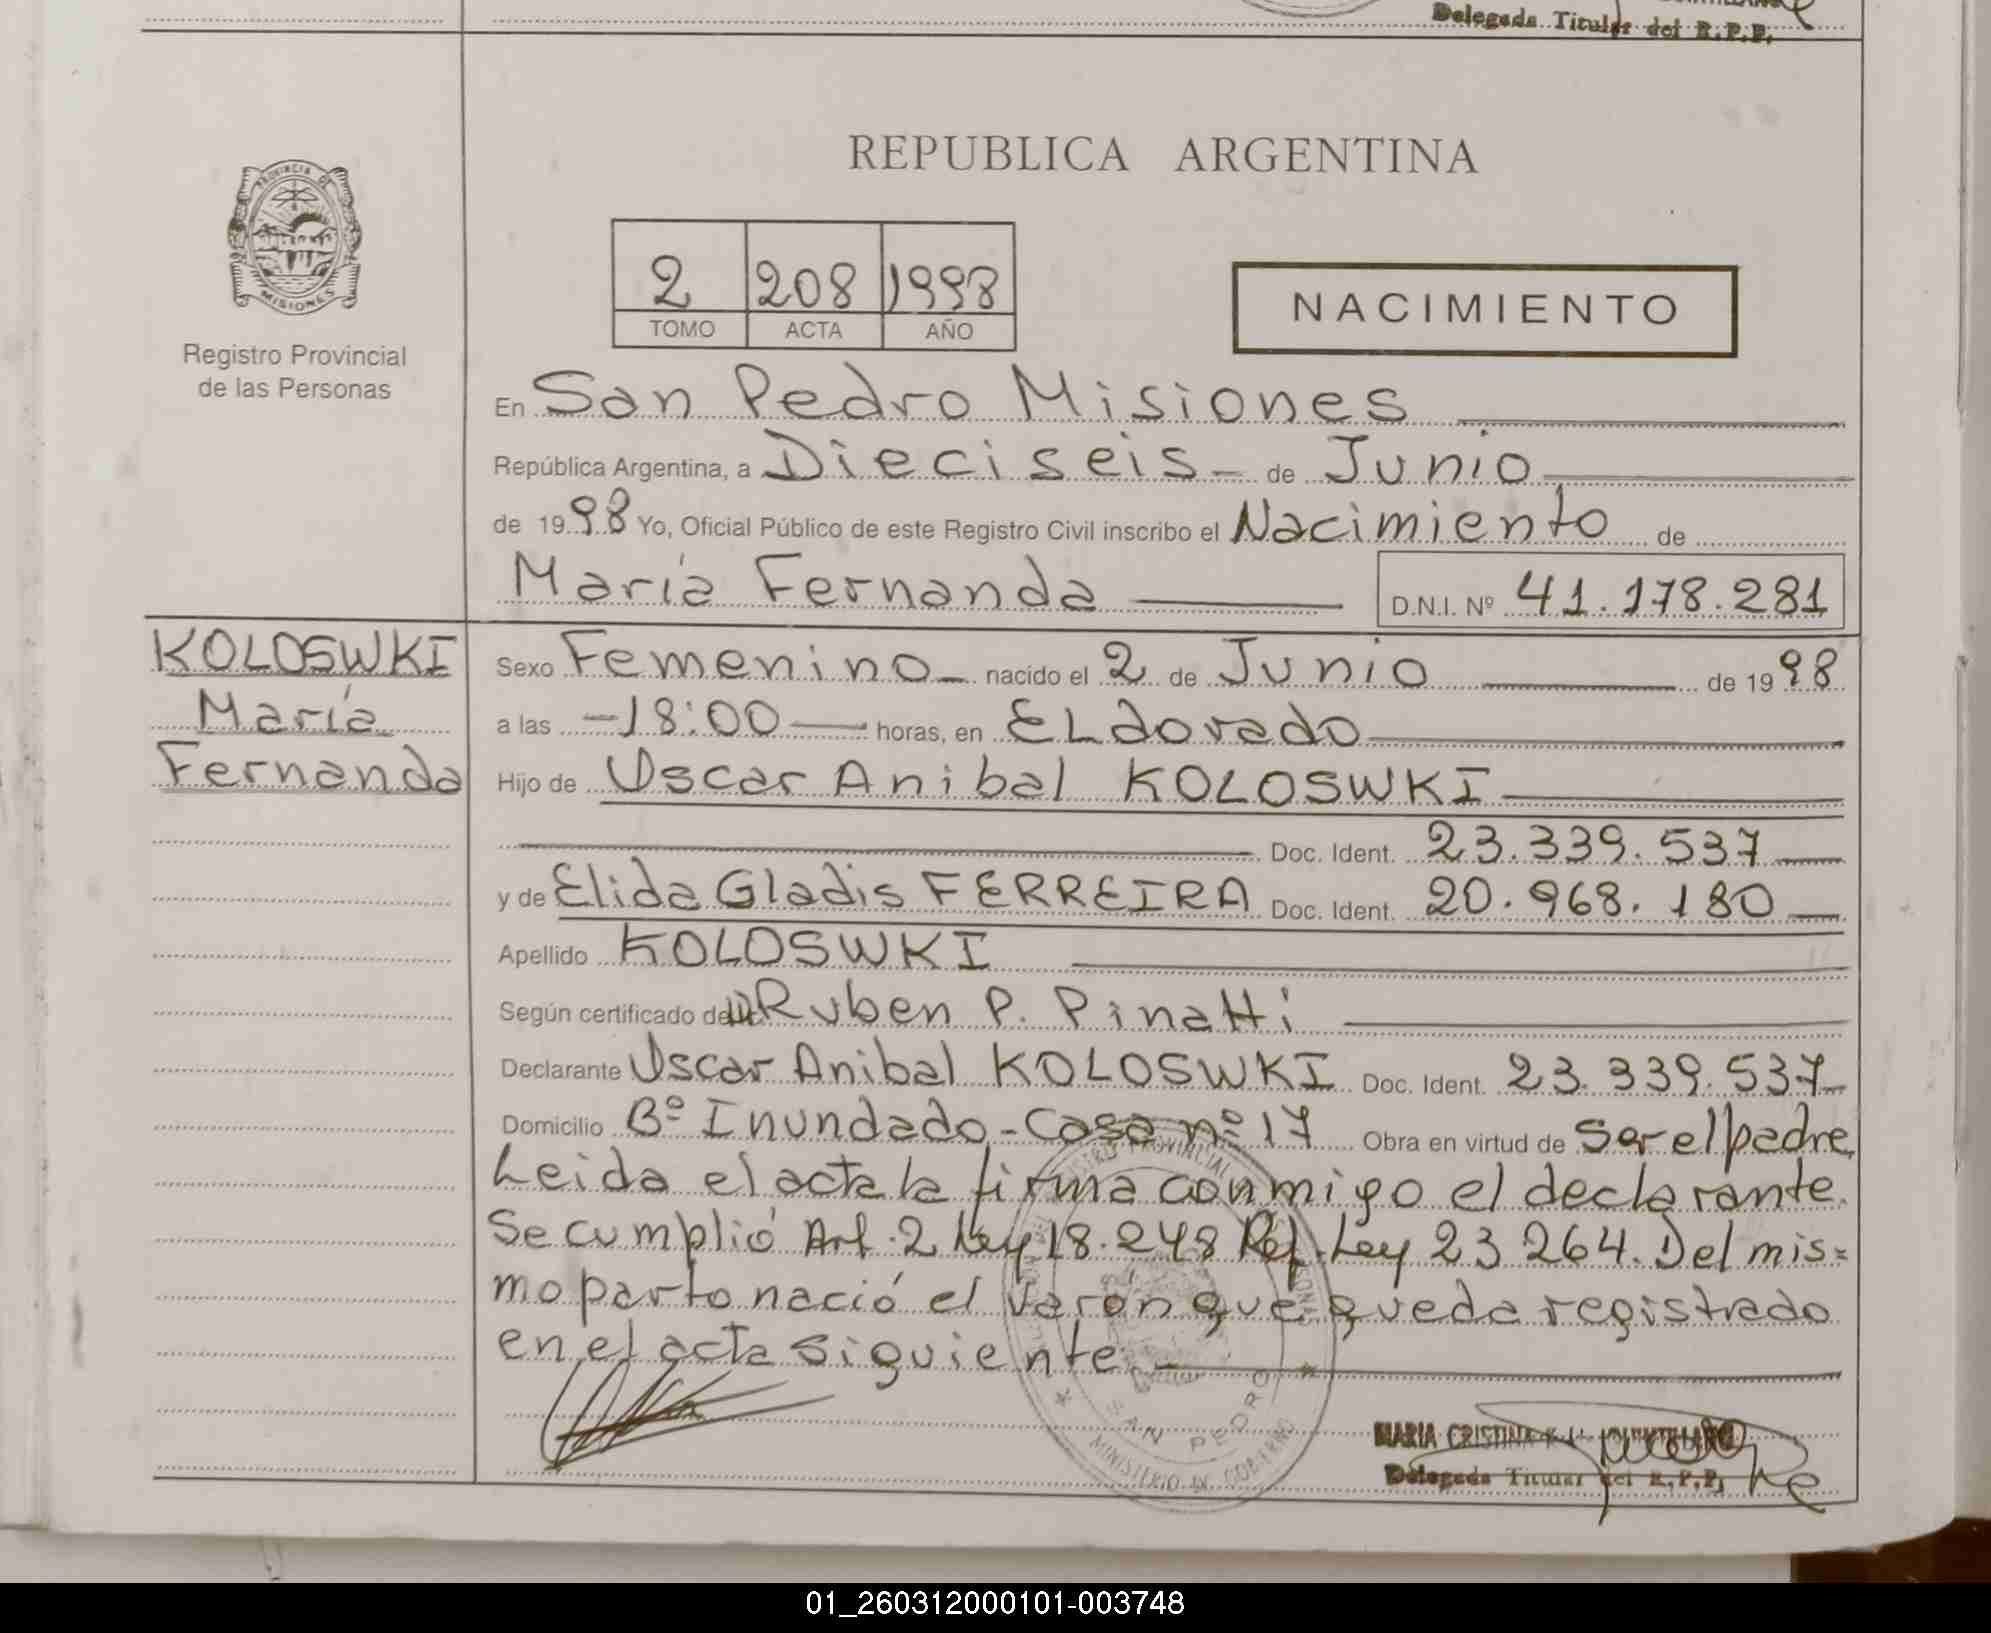 Delegada Titular del R.P.P.
REPUBLICA ARGENTINA
PROVINCIA DE
MISIONES
Registro Provincial
de las Personas
2 208 1998
TOMO ACTA AÑO
NACIMIENTO
En San Pedro Misiones
República Argentina, a Dieciseis - de Junio
de 1998 Yo, Oficial Público de este Registro Civil inscribo el Nacimiento de
María Fernanda D.N.I. Nº 41.178.281
KOLOSWKI
María
Fernanda
Sexo Femenino nacido el 2 de Junio de 1998
a las -18:00 horas, en ELdorado
Hijo de Oscar Anibal KOLOSWKI
Doc. Ident. 23.339.537
y de Elida Gladis FERREIRA Doc. Ident. 20.968.180
Apellido KOLOSWKI
Según certificado de Ruben P. Pinatti
Declarante Oscar Anibal KOLOSWKI Doc. Ident. 23.339.537
Domicilio Bº Inundado - Casa nº 17 Obra en virtud de ser el padre
Leida el acta la firma conmigo el declarante.
Se cumplió Art. 2 Ley 18.248 Ref. Ley 23264. Del mis=
mo parto nació el varon que queda registrado
en el acta siguiente
REGISTRO PROVINCIAL DE LAS PERSONAS
SAN PEDRO
MINISTERIO DE GOBIERNO
MARIA CRISTINA
Delegada Titular del R.P.P.
01_260312000101-003748